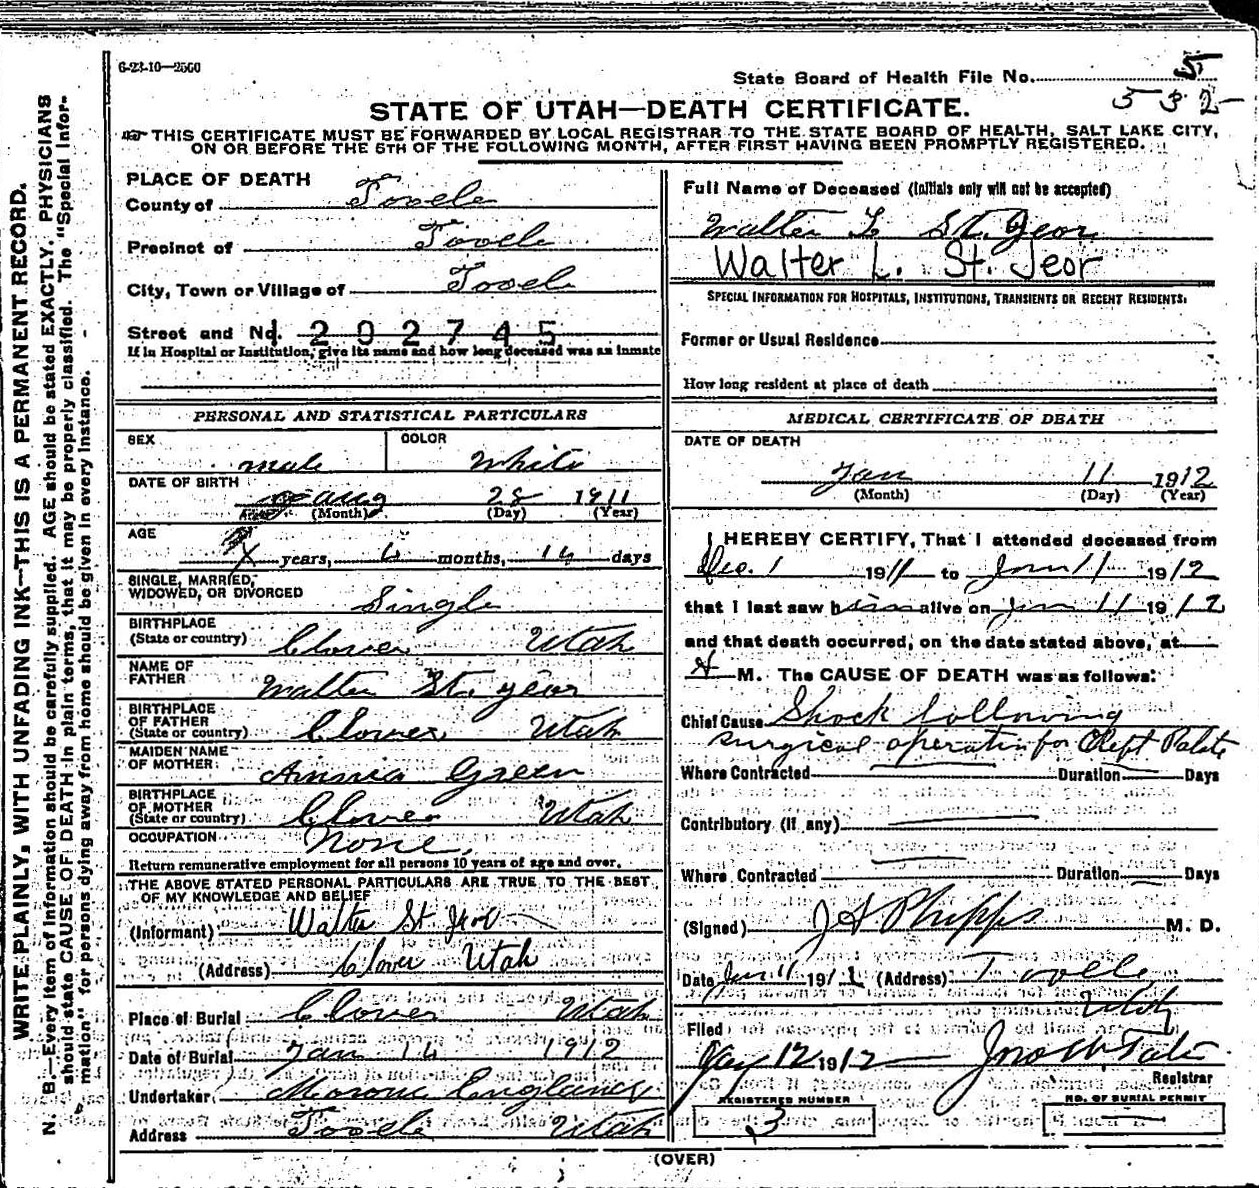 6-23-10—2500
State Board of Health File No. 5
532
STATE OF UTAH—DEATH CERTIFICATE.
THIS CERTIFICATE MUST BE FORWARDED BY LOCAL REGISTRAR TO THE STATE BOARD OF HEALTH, SALT LAKE CITY,
ON OR BEFORE THE 5TH OF THE FOLLOWING MONTH, AFTER FIRST HAVING BEEN PROMPTLY REGISTERED.
WRITE PLAINLY, WITH UNFADING INK—THIS IS A PERMANENT RECORD.
N. B.—Every item of information should be carefully supplied. AGE should be stated EXACTLY. PHYSICIANS
should state CAUSE OF DEATH in plain terms, that it may be properly classified. The "Special Infor-
mation" for persons dying away from home should be given in every instance.
PLACE OF DEATH
County of Tooele
Precinct of Tooele
City, Town or Village of Tooele
Street and No. 1202745
If in Hospital or Institution, give its name and how long deceased was an inmate
PERSONAL AND STATISTICAL PARTICULARS
SEX male COLOR White
DATE OF BIRTH
Aug 28 1911
(Month) (Day) (Year)
AGE
X years, 4 months, 14 days
SINGLE, MARRIED,
WIDOWED, OR DIVORCED Single
BIRTHPLACE
(State or country) Clover Utah
NAME OF
FATHER Walter St. year
BIRTHPLACE
OF FATHER
(State or country) Clover Utah
MAIDEN NAME
OF MOTHER Annie Green
BIRTHPLACE
OF MOTHER
(State or country) Clover Utah
OCCUPATION None.
Return remunerative employment for all persons 10 years of age and over.
THE ABOVE STATED PERSONAL PARTICULARS ARE TRUE TO THE BEST
OF MY KNOWLEDGE AND BELIEF
(Informant) Walter St Jeor
(Address) Clover Utah
Place of Burial Clover Utah
Date of Burial Jan 14 1912
Undertaker Morone England
Address Tooele Utah
Full Name of Deceased (Initials only will not be accepted)
Walter L St. Jeor
Walter L. St. Jeor
SPECIAL INFORMATION FOR HOSPITALS, INSTITUTIONS, TRANSIENTS OR RECENT RESIDENTS.
Former or Usual Residence
How long resident at place of death
MEDICAL CERTIFICATE OF DEATH
DATE OF DEATH
Jan 11 1912
(Month) (Day) (Year)
I HEREBY CERTIFY, That I attended deceased from
Dec. 1 1911 to Jan 11 1912
that I last saw him alive on Jan 11 1912
and that death occurred, on the date stated above, at
A M. The CAUSE OF DEATH was as follows:
Chief Cause Shock following
surgical operation for Cleft Palate
Where Contracted Duration Days
Contributory (if any)
Where Contracted Duration Days
(Signed) J A Phipps M. D.
Date Jan 11 1911 (Address) Tooele
Utah
Filed
Jan 12 1912 Jno W Tate
Registrar
REGISTERED NUMBER
3
NO. OF BURIAL PERMIT
(OVER)